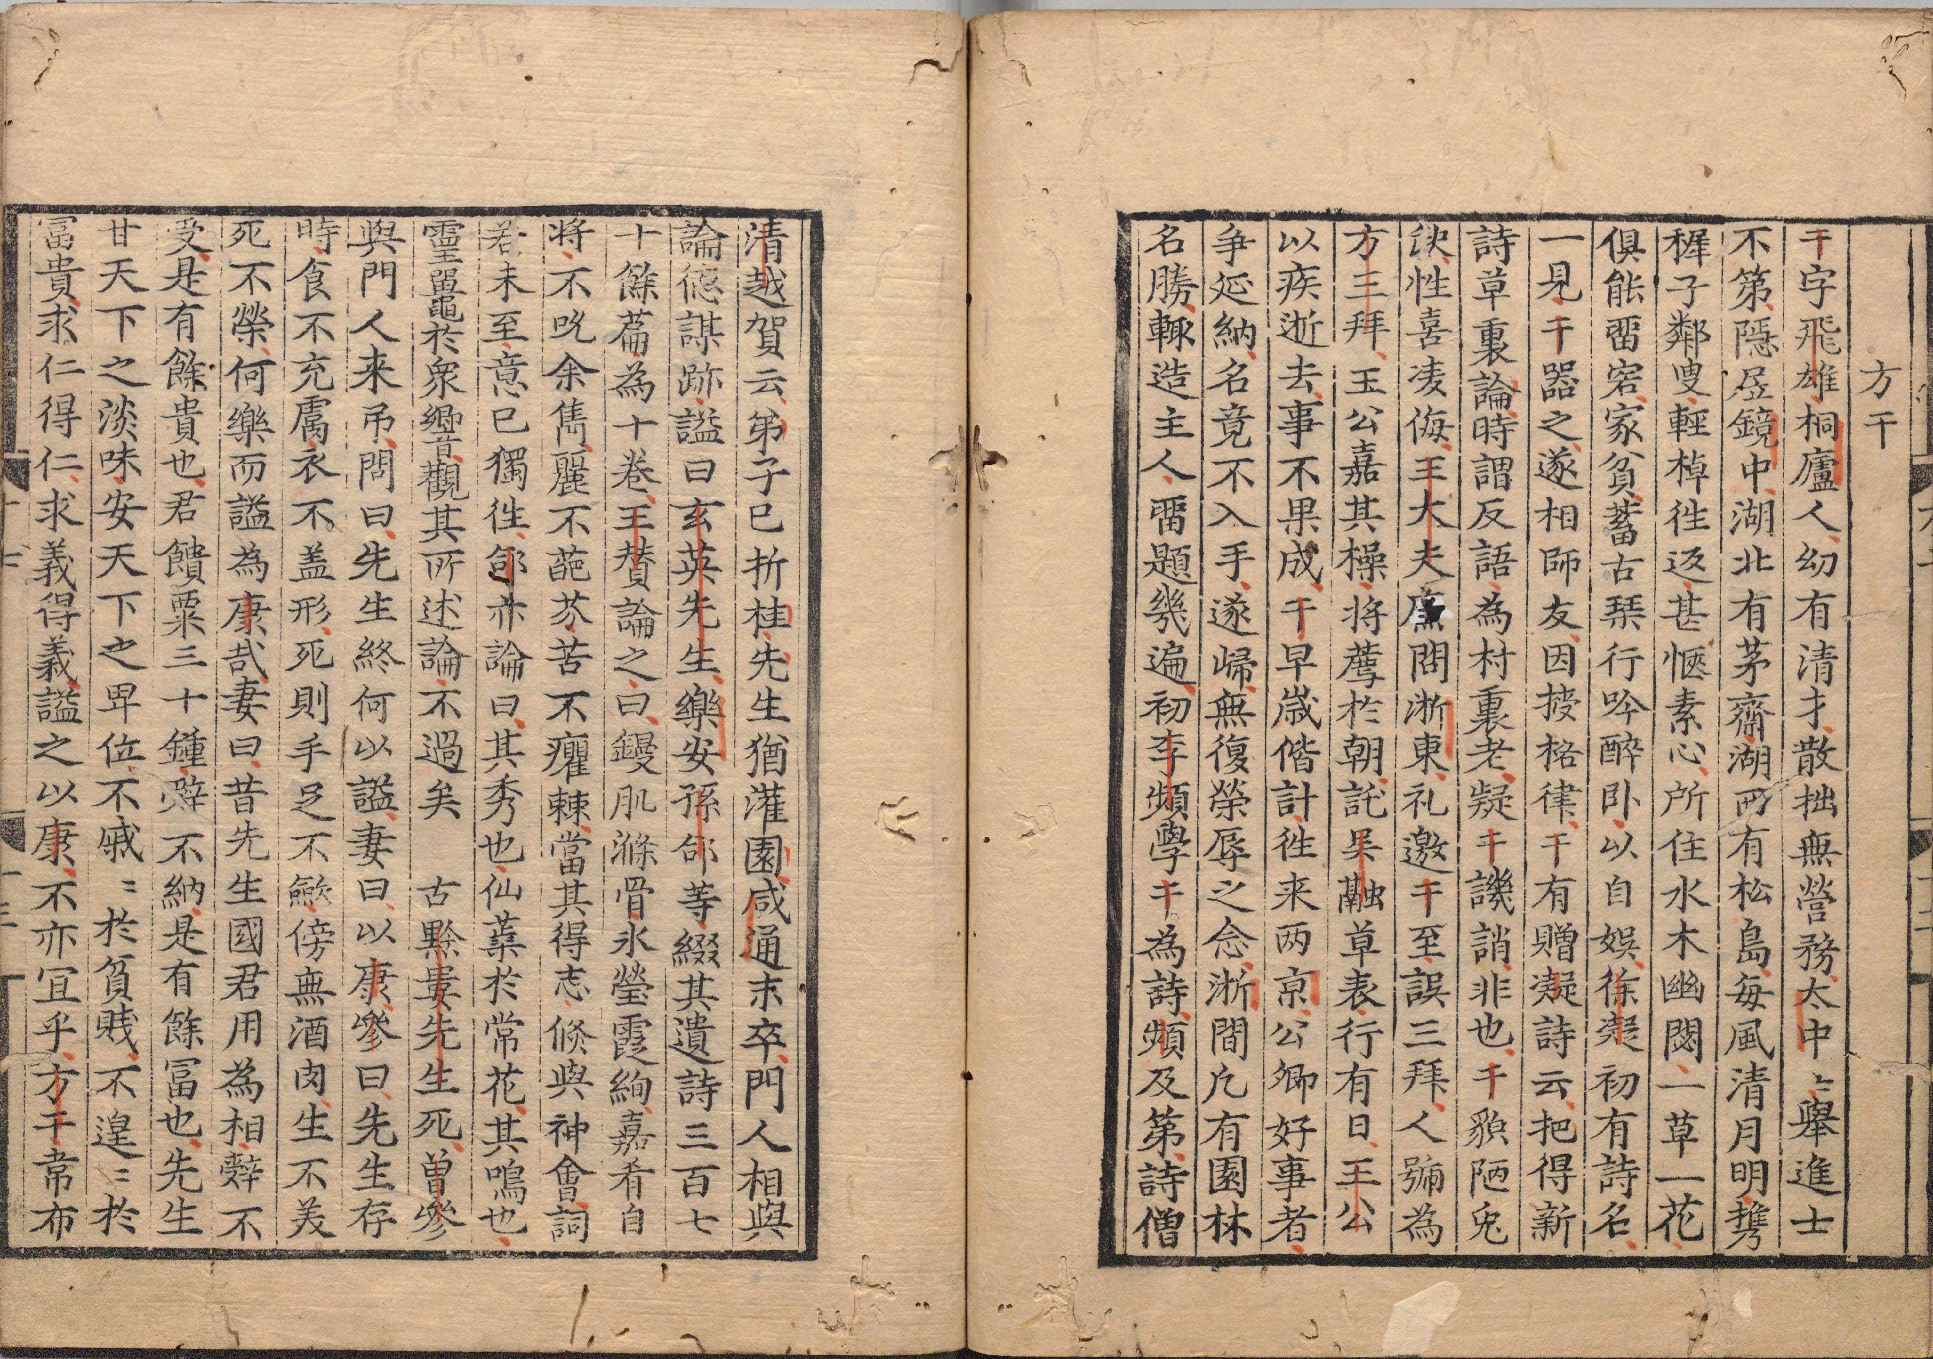 方干
干字飛雄桐廬人幼有清才散拙無營務大中〻舉進士
不第隱居鏡中湖北有茅齋湖西有松島每風清月明携
稚子鄰叟輕棹徃返甚愜素心所住水木幽閟一草一花
俱能留客家貧蓄古琹行吟醉卧以自娛徐凝初有詩名
一見干器之遂相師友因授格律干有贈凝詩云把得新
詩草裏論時謂反語為村裏老疑干譏誚非也干貌陋兎
缺性喜凌侮王大夫廉問浙東礼邀干至誤三拜人號為
方三拜王公嘉其操將薦於朝託吴融草表行有日王公
以疾逝去事不果成干早歳偕計徃来两京公卿好事者
爭延納名竟不入手遂歸無復榮辱之念浙間凢有園林
名勝輙造主人留題幾遍初李頻學干為詩頻及第詩僧
清越賀云弟子已折桂先生猶灌園咸通末卒門人相與
論德謀跡謚曰玄英先生樂安孫郃等綴其遺詩三百七
十餘篇為十卷王賛論之曰鋟肌滌骨氷瑩霞絢嘉肴自
将不吮余雋麗不葩芬苦不癯棘當其得志倐與神會詞
若未至意已獨徃郃亦論曰其秀也仙蘂於常花其鳴也
靈鼉於衆響觀其所述論不過矣　古黔婁先生死曽參
與門人来吊問曰先生終何以謚妻曰以康參曰先生存
時食不充膚衣不盖形死則手足不斂傍無酒肉生不美
死不榮何樂而謚為康哉妻曰昔先生國君用為相辭不
受是有餘貴也君饋粟三十鍾辭不納是有餘富也先生
甘天下之淡味安天下之卑位不戚〻於貧賤不遑〻於
富貴求仁得仁求義得義謚之以康不亦冝乎方干常布